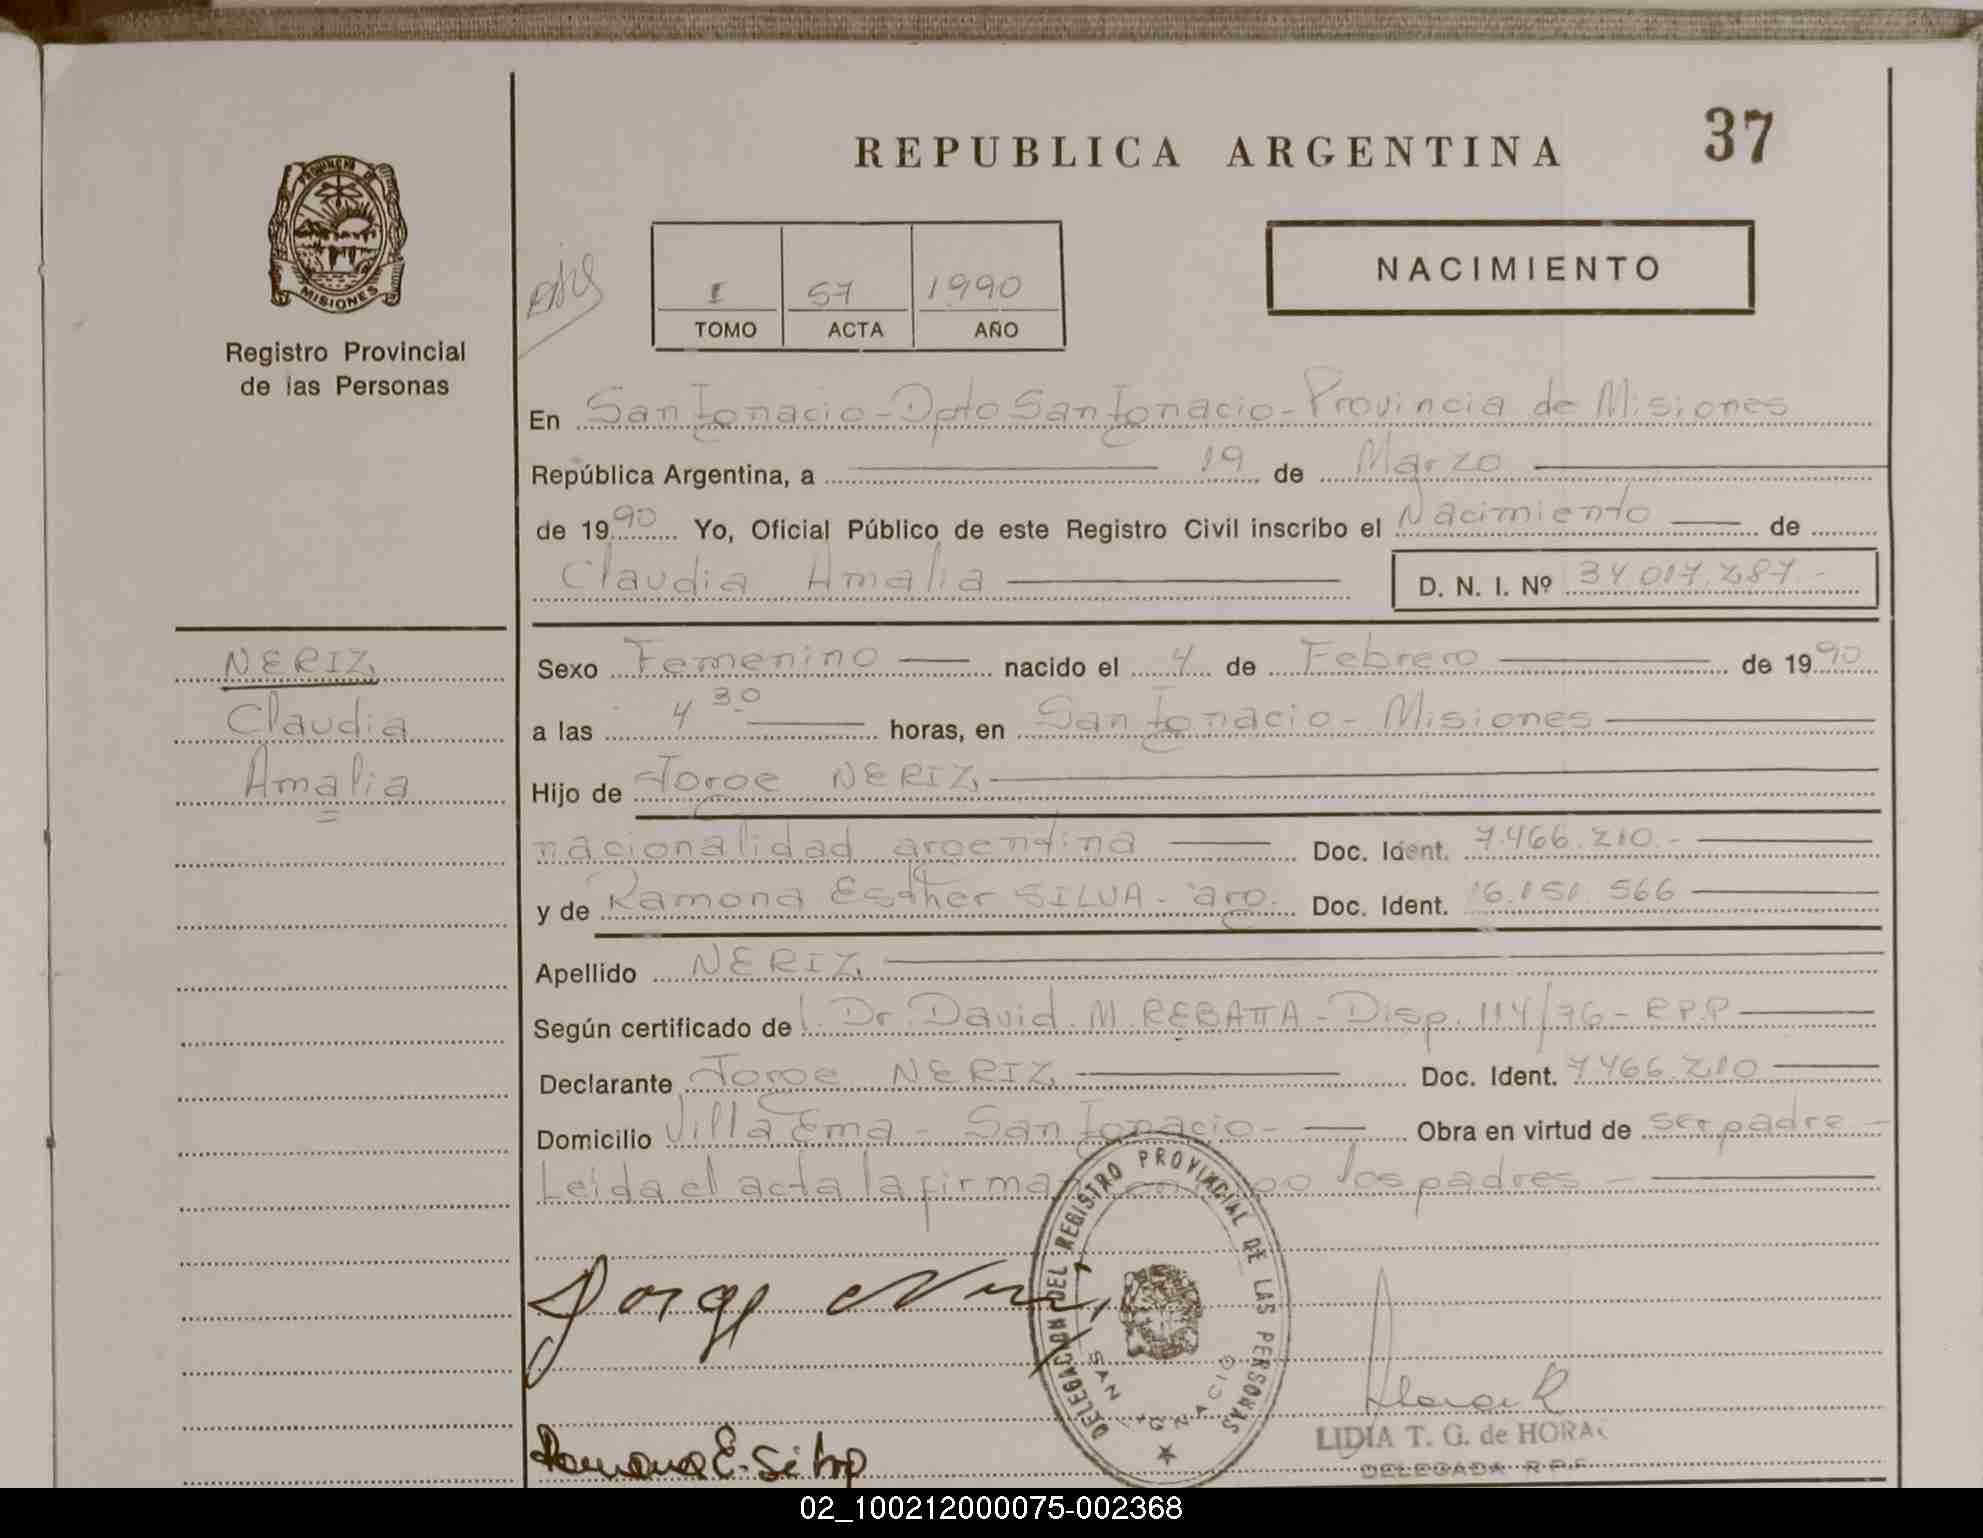 37
REPUBLICA ARGENTINA
PROVINCIA DE
MISIONES
Registro Provincial
de las Personas
I 57 1990
TOMO ACTA AÑO
NACIMIENTO
En San Ignacio - Dpto San Ignacio - Provincia de Misiones
República Argentina, a 19 de Marzo
de 1990 Yo, Oficial Público de este Registro Civil inscribo el Nacimiento de
Claudia Amalia D. N. I. Nº 34.017.287.-
NERIZ
Claudia
Amalia
Sexo Femenino nacido el 4 de Febrero de 1990
a las 4 30 horas, en San Ignacio - Misiones
Hijo de Jorge NERIZ
nacionalidad argentina Doc. Ident. 7.466.210.-
y de Ramona Esther SILVA - arg. Doc. Ident. 16.151.566
Apellido NERIZ
Según certificado de l. Dr. David. M. REBATTA - Disp. 114/76 - R.P.P
Declarante Jorge NERIZ Doc. Ident. 7466.210
Domicilio Villa Ema - San Ignacio - Obra en virtud de ser padre -
Leída el acta la firman los padres -
Jorge Neriz
DELEGACION DEL REGISTRO PROVINCIAL DE LAS PERSONAS
SAN IGNACIO
Ramona E. Silva
LIDIA T. G. de HORA
DELEGADA R.P.P.
02_100212000075-002368